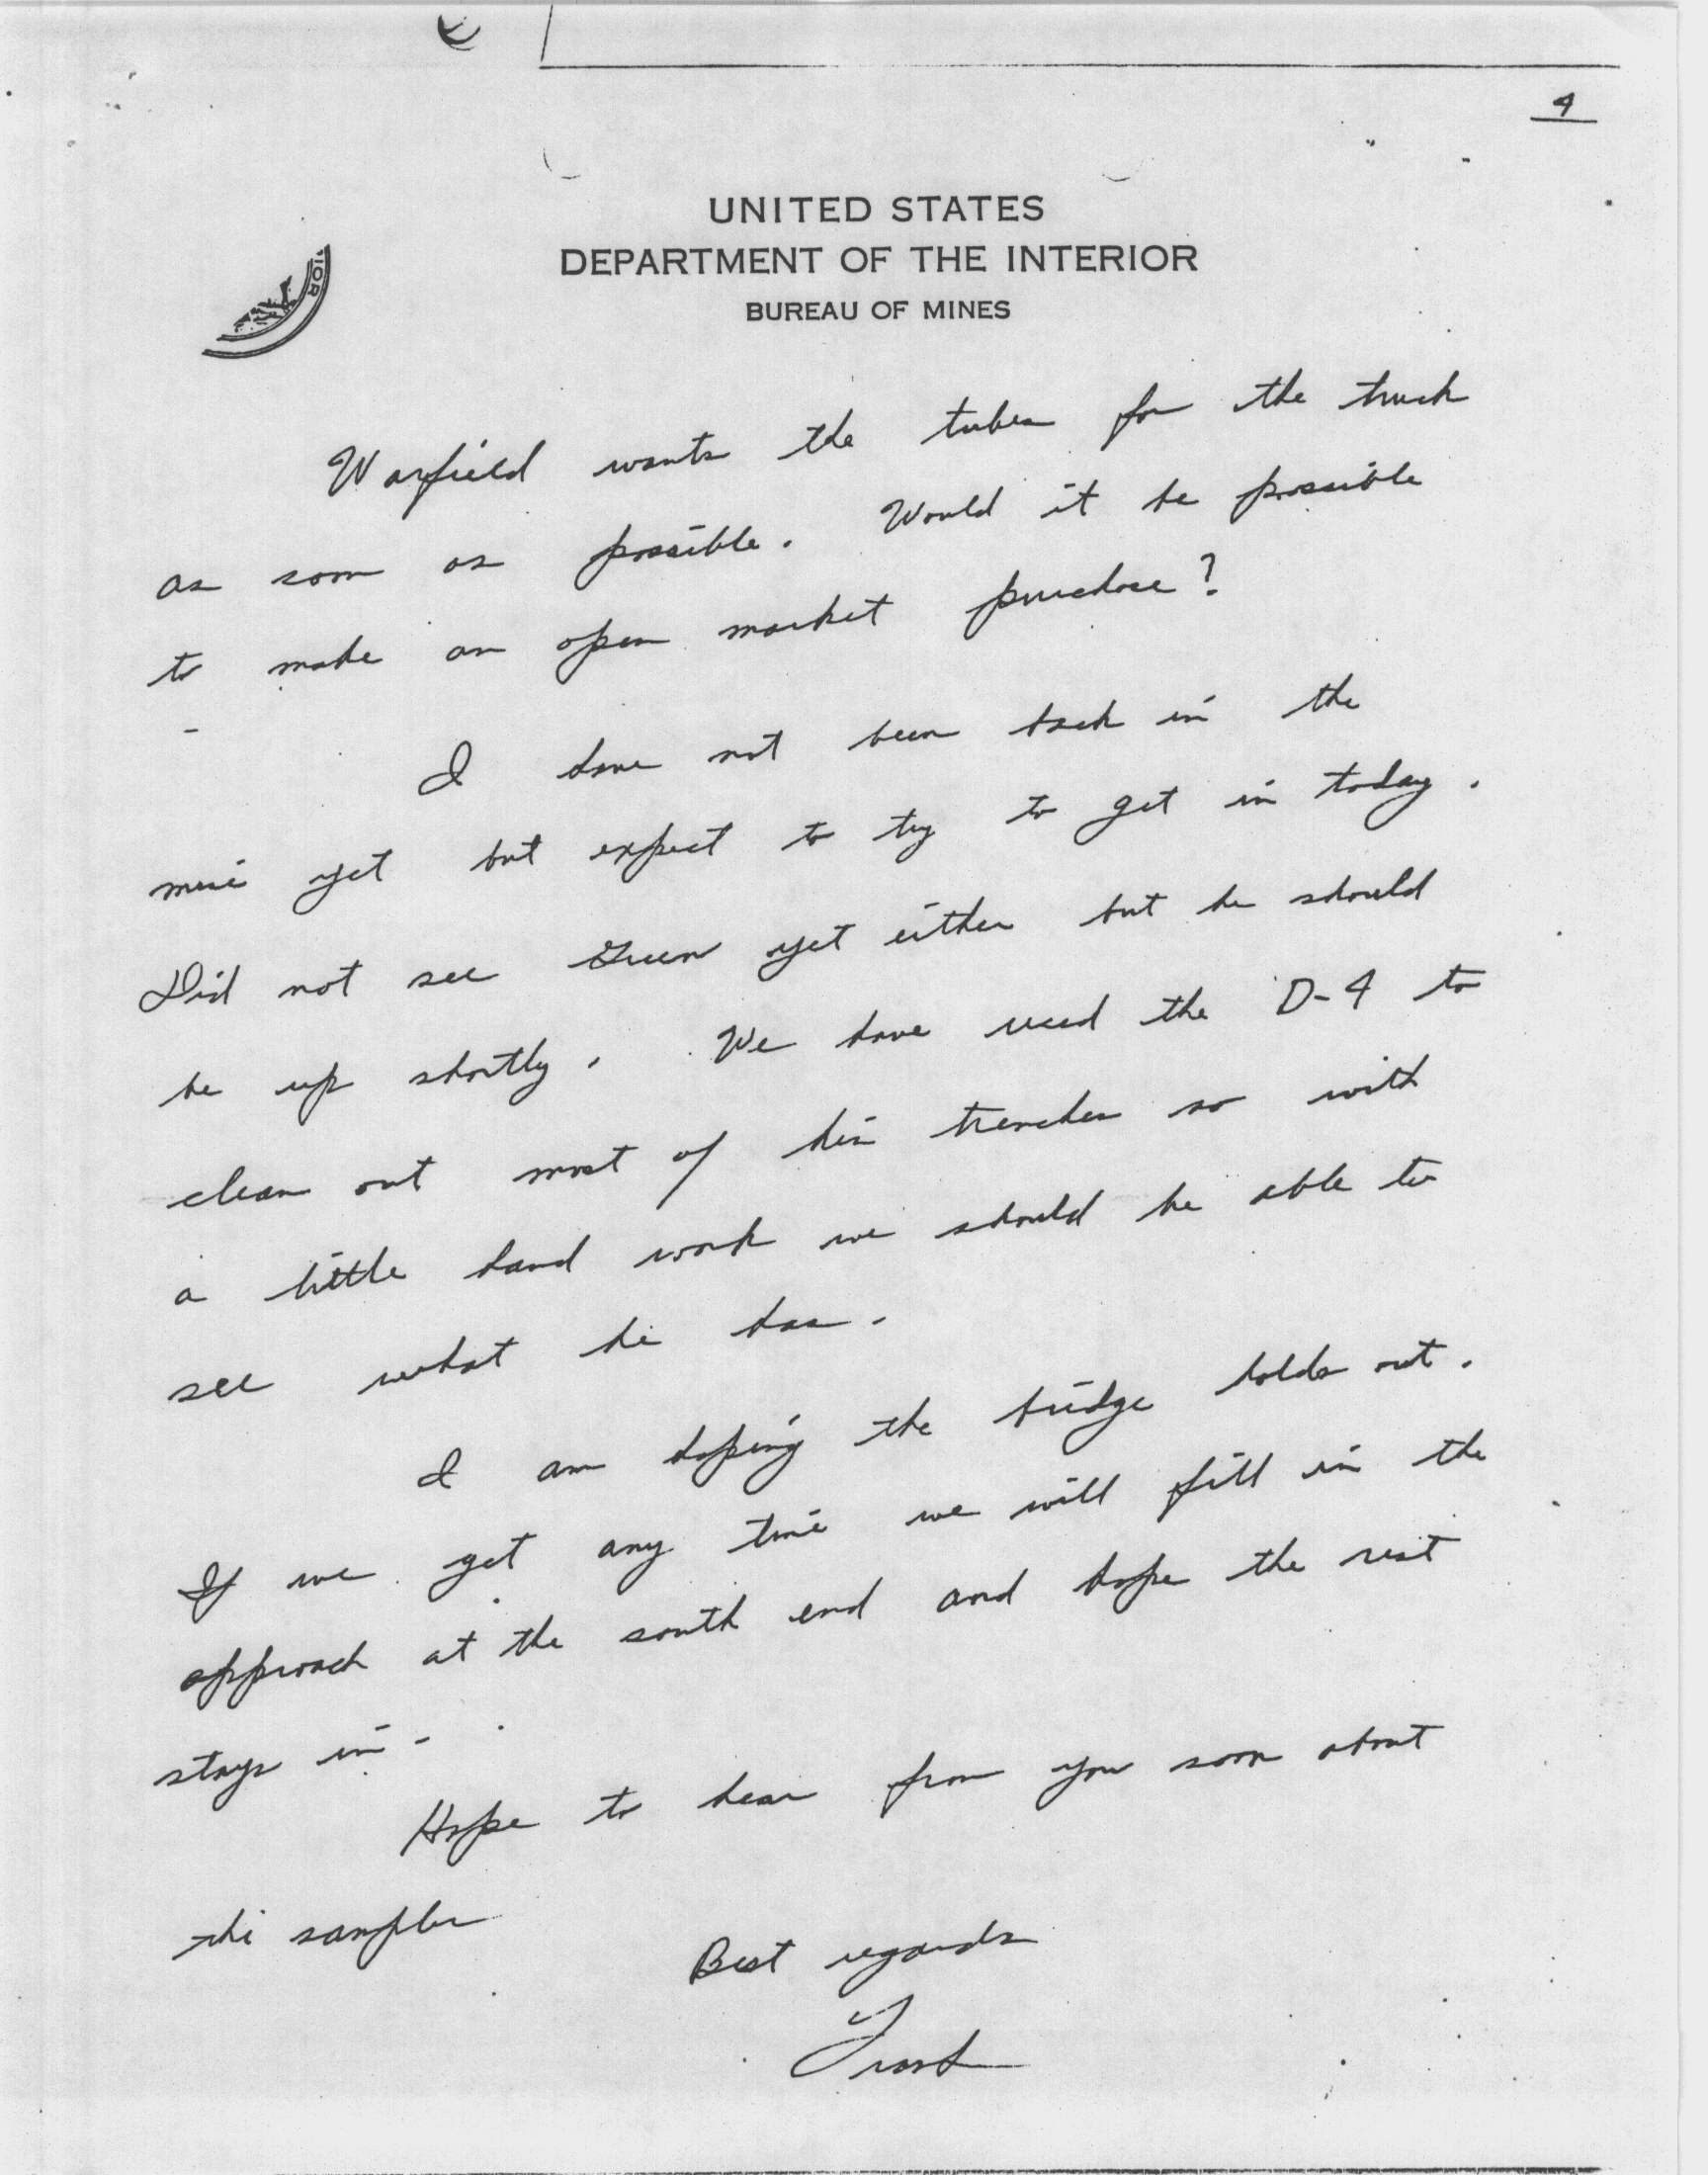 4
UNITED STATES
DEPARTMENT OF THE INTERIOR
BUREAU OF MINES
IOR
Warfield wants the tubes for the truck
as soon as possible. Would it be possible
to make an open market purchase?
I have not been back in the
mine yet but expect to try to get in today.
Did not see Green yet either but he should
be up shortly. We have used the D-4 to
clean out most of his trenches so with
a little hand work we should be able to
see what he has.
I am hoping the bridge holds out.
If we get any time we will fill in the
approach at the south end and hope the rest
stays in.
Hope to hear from you soon about
the sampler
Best regards